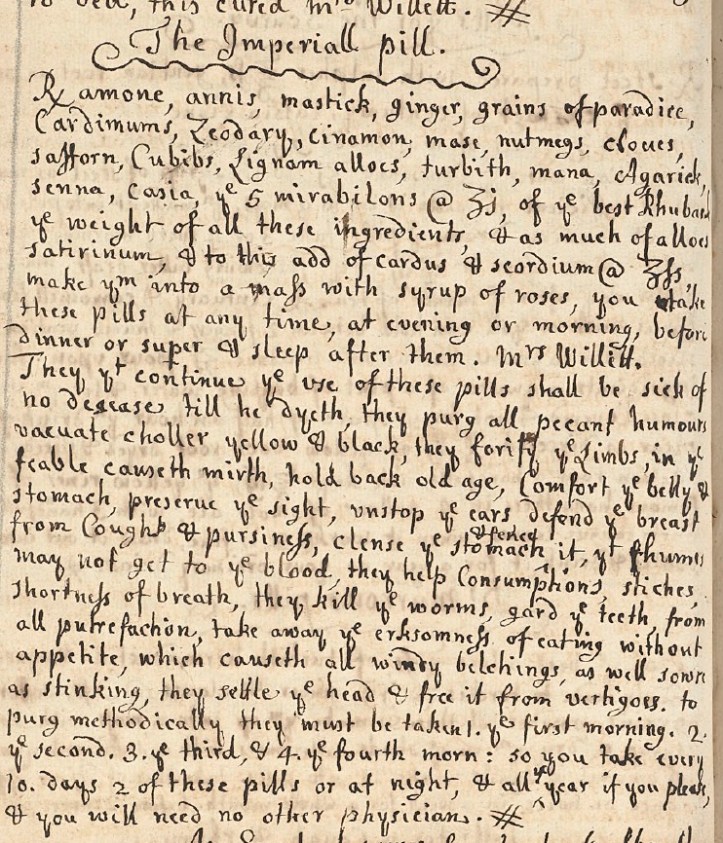 to bed, this cured mrs Willett. #
The Imperiall pill.
℞ amone, annis, mastick, ginger, grains of paradice,
Cardimums, Zeodary, cinamon, mase, nutmegs, cloues,
safforn, Cubibs, Lignam alloes, turbith, mana, Agarick,
senna, casia, ye 5 mirabilons @ ʒj, of ye best Rhubarb
ye weight of all these ingredients, & as much of alloes
satirinum, & to this add of cardus & scordium @ ʒſs,
make ym into a maſs with syrup of roses, you take
these pills at any time, at evening or morning, before
dinner or super & sleep after them. mrs Willett.
They yt continue ye use of these pills shall be sick of
no desease till he dyeth, they purg all peccant humours
vacuate choller yellow & black, they forify ye Limbs, in ye
feable causeth mirth, hold back old age, Comfort ye belly &
stomach, preserue ye sight, vnstop ye ears defend ye breast
from Coughs & pursineſs, clense ye stomach & fence it, yt rhumes
may not get to ye blood, they help Consumptions, stiches,
shortneſs of breath, they kill ye worms, gard ye teeth, from
all putrefachion, take away ye erksomneſs of eating without
appetite, which causeth all windy belchings, as well sown
as stinking, they settle ye head & free it from vertigoes. to
purg methodically they must be taken 1. ye first morning. 2.
ye second. 3. ye third, & 4. ye fourth morn: so you take every
10. days 2 of these pills or at night, & all ye year if you pleas,
& you will need no other physician. #